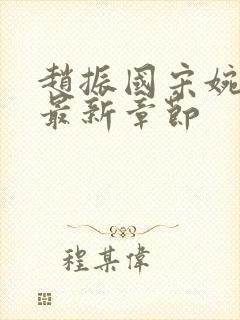 趙振國宋婉
最新章節
程某偉